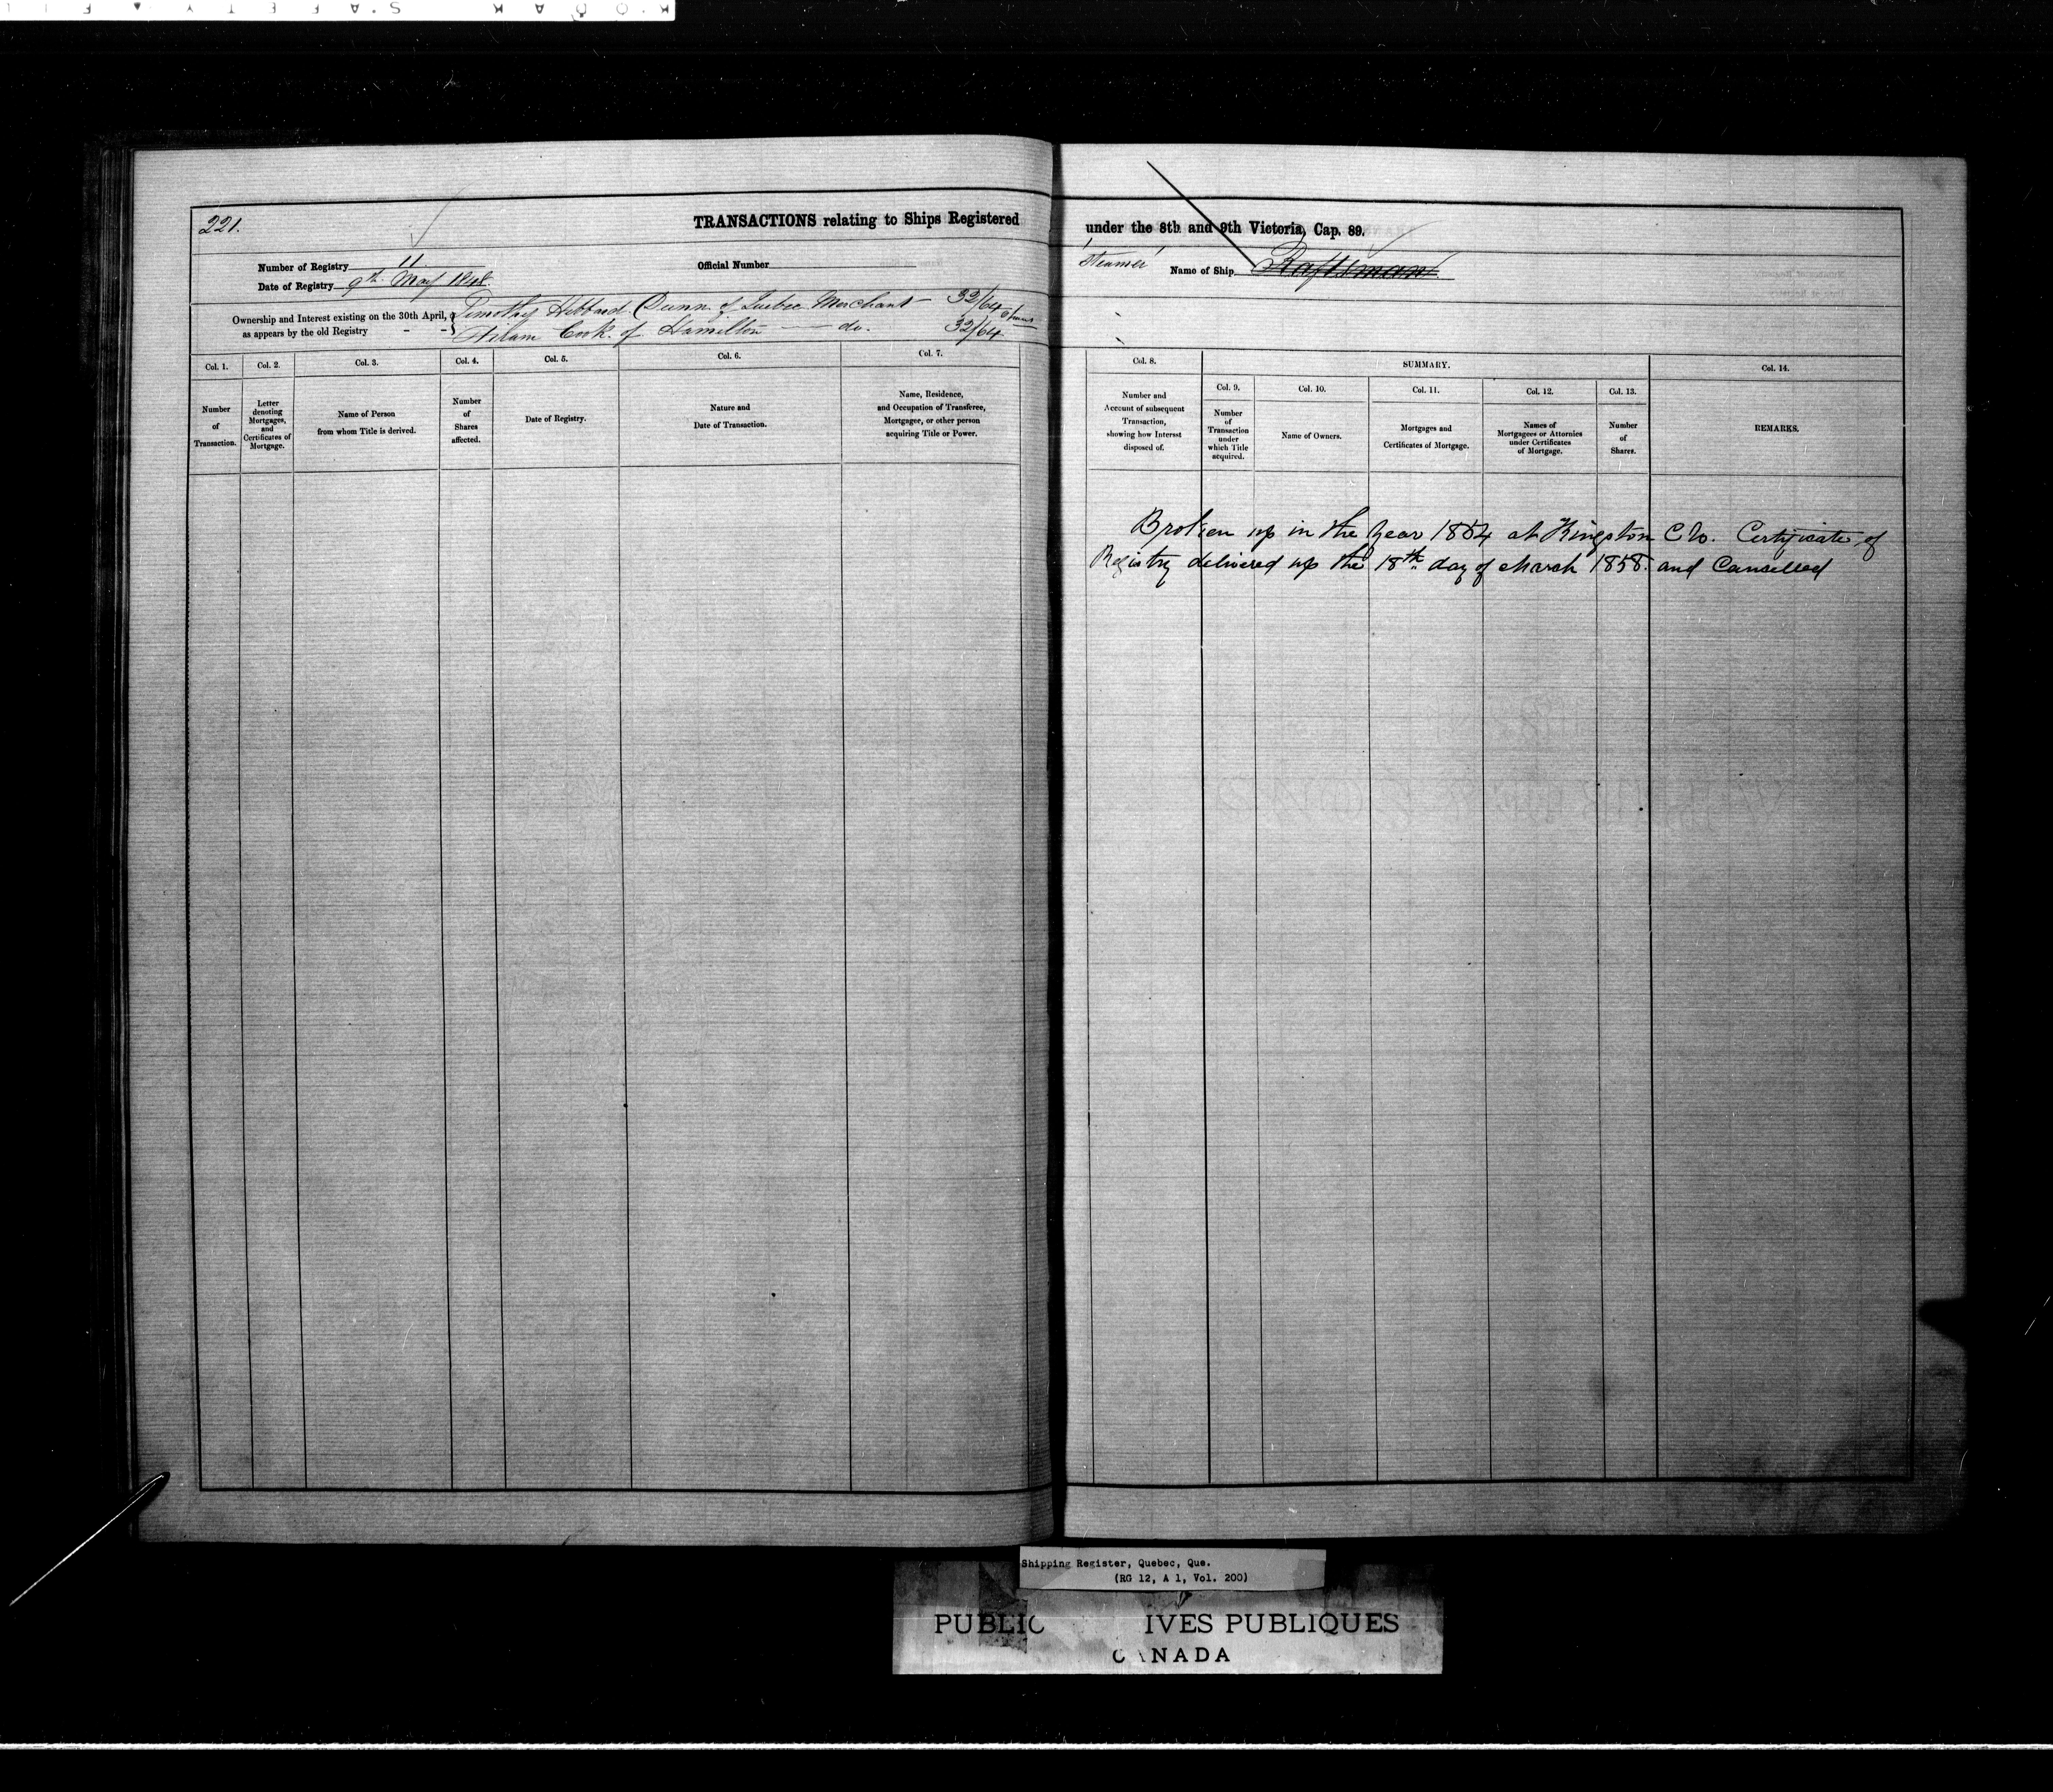 221.
TRANSACTIONS relating to Ships Registered under the 8th and 9th Victoria, Cap. 89.
Number of Registry 11.
Official Number
Steamer Name of Ship Raftsman
Date of Registry 9th May 1848.
Ownership and Interest existing on the 30th April,
as appears by the old Registry - -
Timothy Hibbard Dunn of Quebec Merchant - 32/64 shares
Hiram Cook of Hamilton - do. 32/64
Col. 1.
Number
of
Transaction.
Col. 2.
Letter
denoting
Mortgages,
and
Certificates of
Mortgage.
Col. 3.
Name of Person
from whom Title is derived.
Col. 4.
Number
of
Shares
affected.
Col. 5.
Date of Registry.
Col. 6.
Nature and
Date of Transaction.
Col. 7.
Name, Residence,
and Occupation of Transferee,
Mortgagee, or other person
acquiring Title or Power.
Col. 8.
Number and
Account of subsequent
Transaction,
showing how Interest
disposed of.
SUMMARY.
Col. 9.
Number
of
Transaction
under
which Title
acquired.
Col. 10.
Name of Owners.
Col. 11.
Mortgages and
Certificates of Mortgage.
Col. 12.
Names of
Mortgagees or Attornies
under Certificates
of Mortgage.
Col. 13.
Number
of
Shares.
Col. 14.
REMARKS.
Broken up in the Year 1854 at Kingston C W. Certificate of
Registry delivered up the 18th day of March 1858. and Cancelled
Shipping Register, Quebec, Que.
(RG 12, A 1, Vol. 200)
PUBLIC IVES PUBLIQUES
CANADA